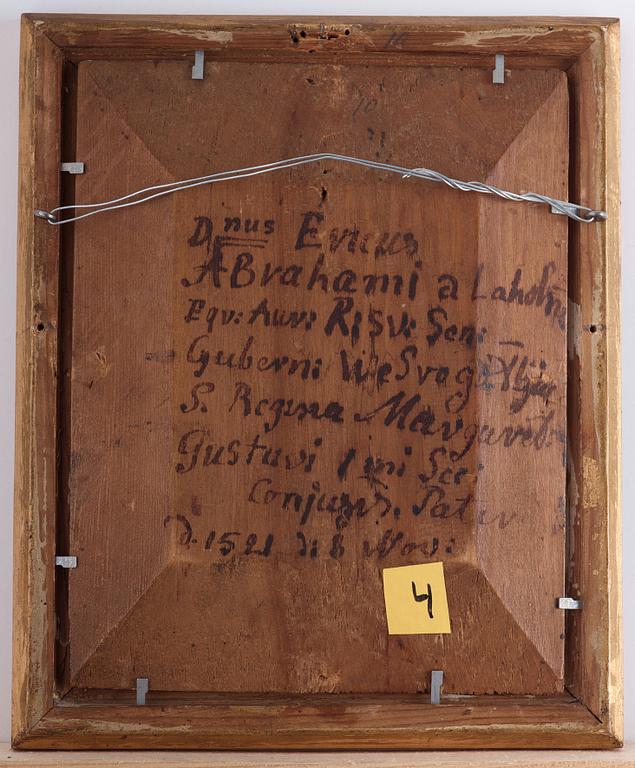 10
D nus Ericus
ABrahami a Laholm
Eqv: Auv: R: SV: Sen:
Gubern: WeSvog:
S. Regina Margareta
Gustavi 1 mi Sec:
Conjugis. Pater
d. 1521 d: 8 Nov:
4